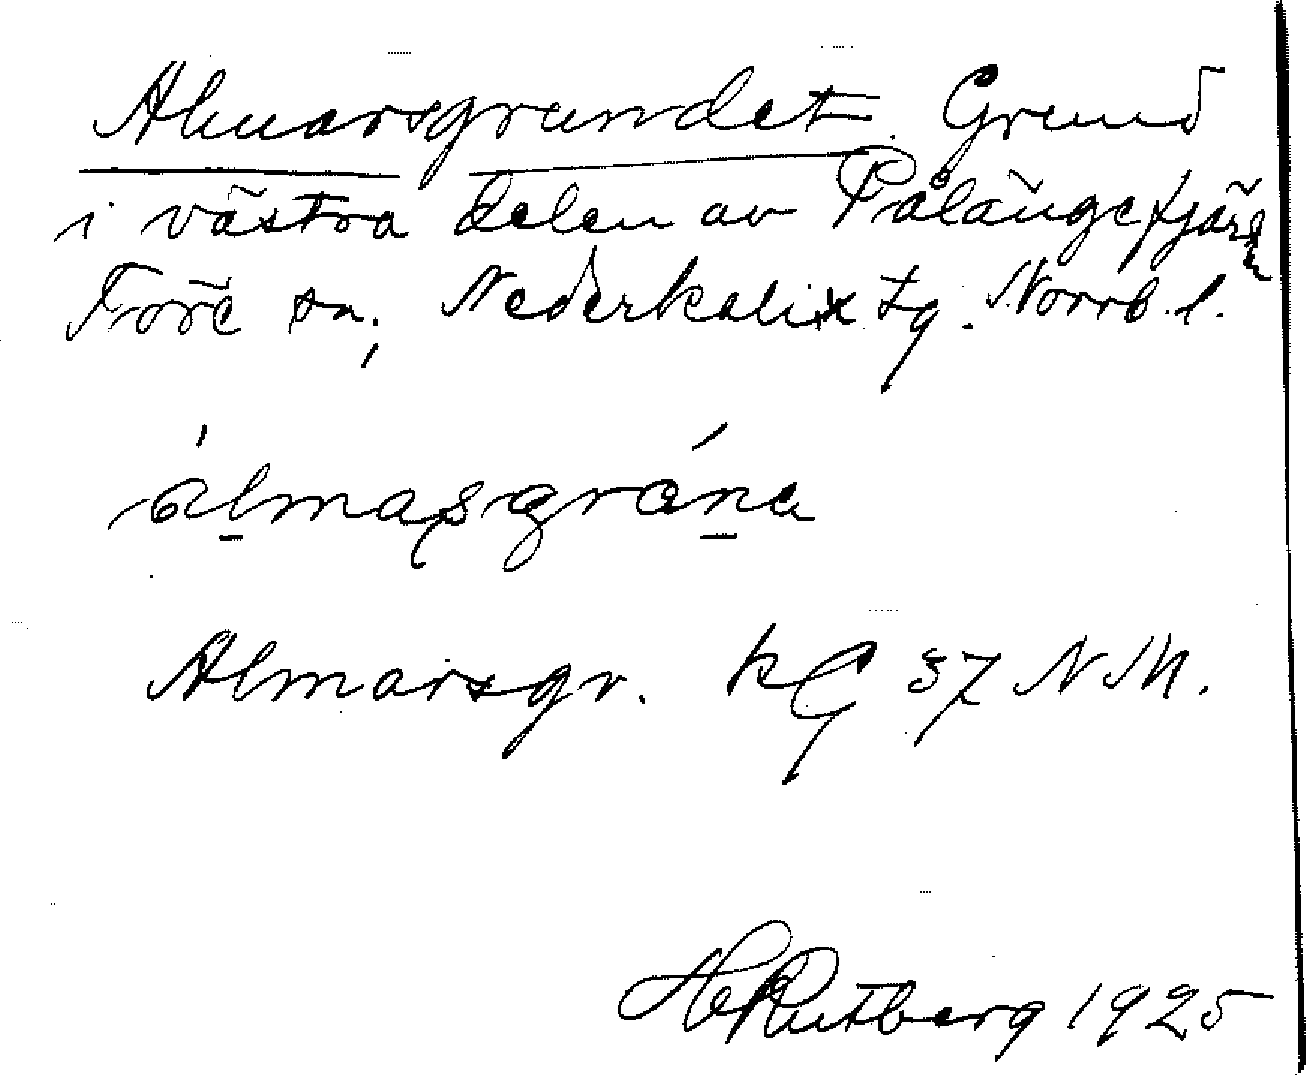 Almarsgrundet. Grund
i västra delen av Pålängefjärden
Töre sn, Nederkalix tg. Norrb. l.
álmasgrána
Almarsgr. kG 37 NM.
H Rutberg 1925